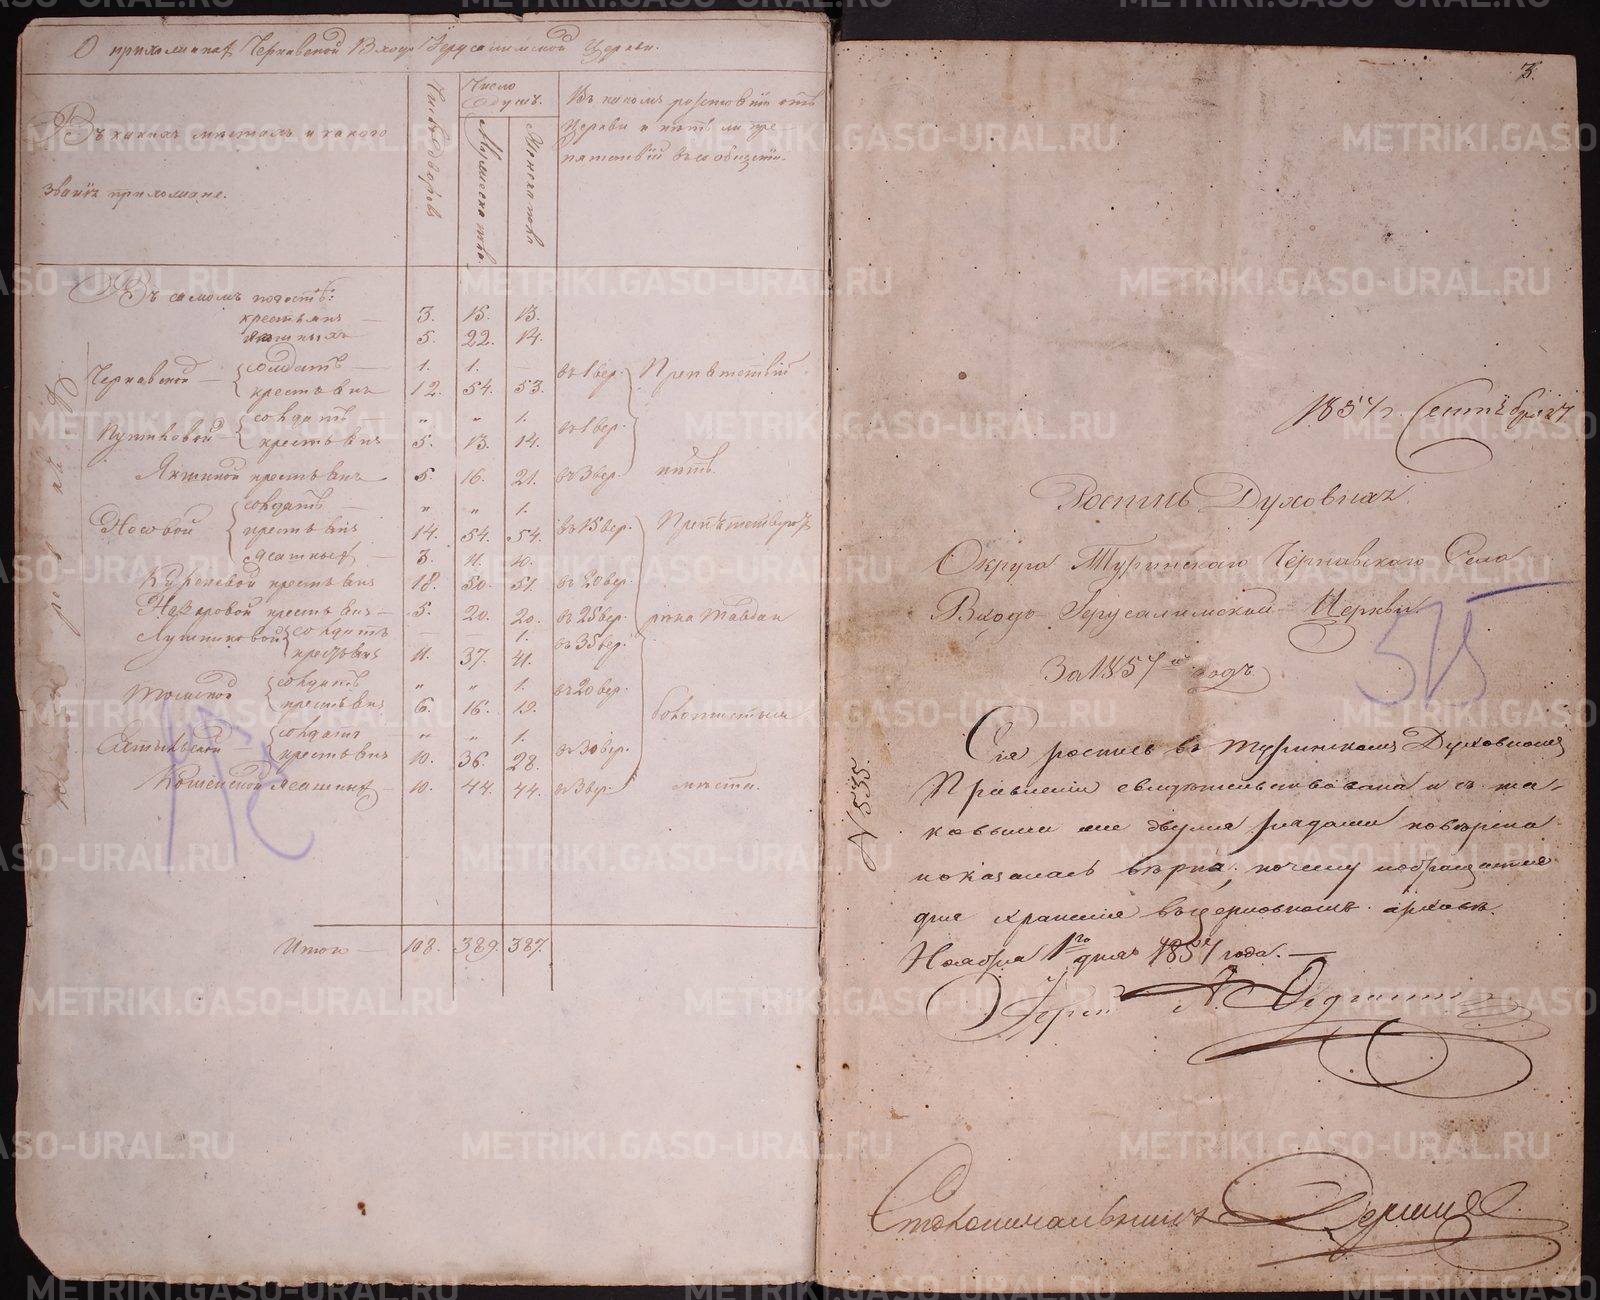 О прихожанахъ Чернавской Входо Іерусалимской Церкви.
Въ какихъ мѣстахъ и какого
званія прихожане.
Число дворовъ
Число
душъ.
Мужеска пола.
Женска пола
Въ какомъ разстояніи отъ
Церкви и нѣтъ ли пре
пятствій въ сообщеніи.
Въ самомъ погостѣ:
крестьянъ — 3. 15. 13.
5. 22. 14.
Чернавской — солдатъ 1. 1. — въ 1 вер. Препятствій
крестьянъ 12. 54. 53.
солдатъ — „ „ 1. въ 1 вер.
крестьянъ 5. 13. 14.
Якшиной крестьянъ 5. 16. 21. въ 3 вер. нѣтъ.
солдатъ — „ „ 1.
Носовой крестьянъ 14. 54. 54. въ 15 вер.
3. 11. 10.
крестьянъ 18. 50. 51. въ 20 вер.
крестьянъ — 5. 20. 20. въ 25 вер. рѣка Тавда и
солдатъ — — 1. въ 35 вер.
крестьянъ 11. 37. 41.
солдатъ „ „ 1. въ 20 вер.
крестьянъ 6. 16. 12. болотистыя
солдатъ „ „ 1. въ 30 вер.
крестьянъ 10. 36. 28.
10. 44. 44. въ 3 вер. мѣста.
Итого — 108. 389. 387.
3.
1857 г. Сентября 27
Роспись Духовная
Округа Туринскаго Чернавскаго Села
Входо-Іерусалимской Церкви
За 1857й годъ
№ 535.
Сія роспись въ Туринскомъ Духовномъ
Правленіи свидѣтельствована и съ та-
ковыми же двумя годами повѣрена
оказалась вѣрна, почему и обращается
для храненія въ церковномъ архивѣ.
Ноября 1го дня 1857 года. —
Іерей
Столоначальникъ
METRIKI.GASO-URAL.RU